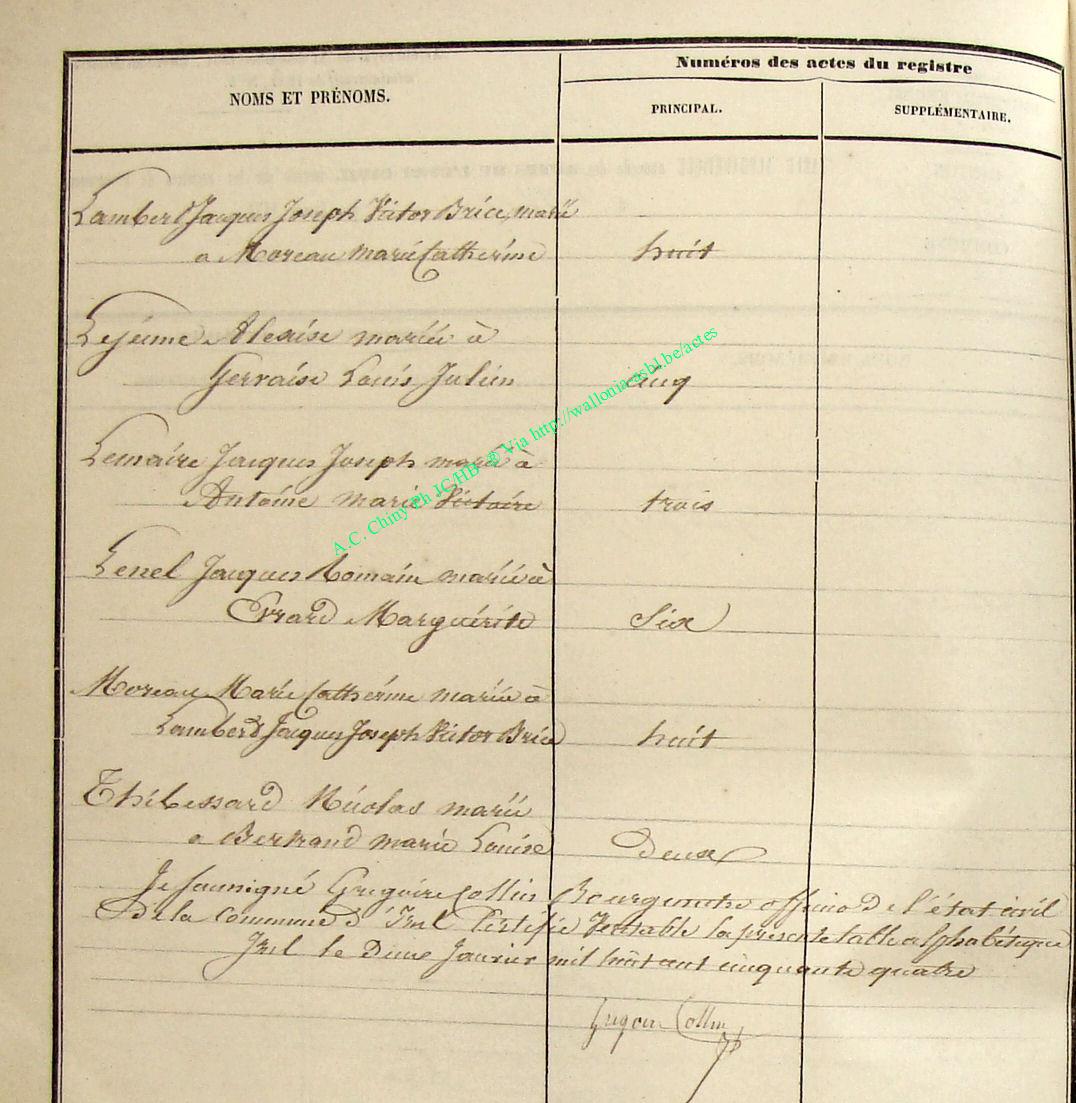 Numéros des actes du registre
NOMS ET PRÉNOMS.
PRINCIPAL.
SUPPLÉMENTAIRE.
Lambert Jacques Joseph Victor Brice, marié
a Moreau marie Catherine huit
Lejeune Alexise mariée à
Gervaise Louis Julien cinq
Lemaire Jacques Joseph marié à
Antoine marie Victoire trois
Lenel Jacques Romain mariée à
Evrard Marguérite Six
Moreau Marie Catherine mariée à
Lambert Jacques Joseph Victor Brice huit
Thibessard Nicolas marié
a Bertrand marie Louise deux
Je soussigné Gregoire Collin Bourgmestre officier de l'état civil
De la Commune d'Izel Certifie Veritable la présente table alphabétique
Izel le Janvier mil huit cent cinquante quatre
Gregoire Collin
A.C. Chiny Ph JC/HB ® Via http://wallonia-asbl.be/actes